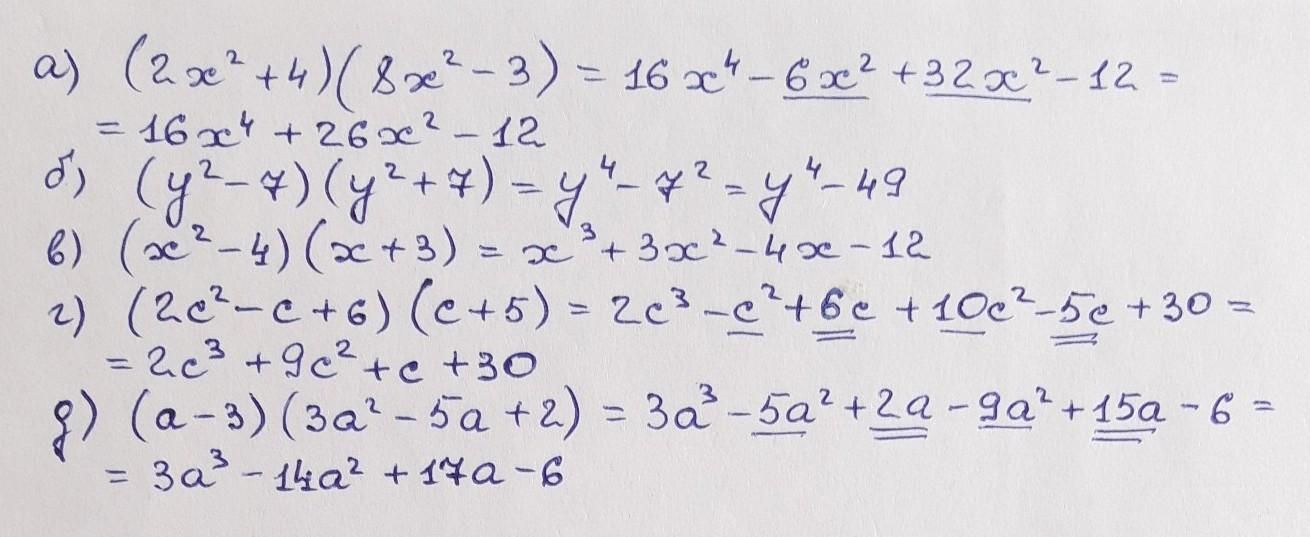 а) (2x² + 4)(8x² - 3) = 16x⁴ - 6x² + 32x² - 12 =
= 16x⁴ + 26x² - 12
б) (y² - 7)(y² + 7) = y⁴ - 7² = y⁴ - 49
в) (x² - 4)(x + 3) = x³ + 3x² - 4x - 12
г) (2c² - c + 6)(c + 5) = 2c³ - c² + 6c + 10c² - 5c + 30 =
= 2c³ + 9c² + c + 30
д) (a - 3)(3a² - 5a + 2) = 3a³ - 5a² + 2a - 9a² + 15a - 6 =
= 3a³ - 14a² + 17a - 6